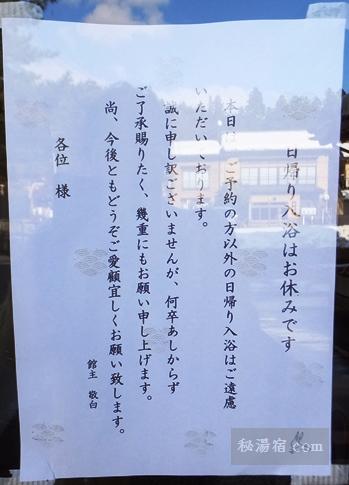 日帰り入浴はお休みです
本日は、ご予約の方以外の日帰り入浴はご遠慮
いただいております。
誠に申し訳ございませんが、何卒あしからず
ご了承賜りたく、幾重にもお願い申し上げます。
尚、今後ともどうぞご愛顧宜しくお願い致します。
館主 敬白
各位 様
秘湯宿.com